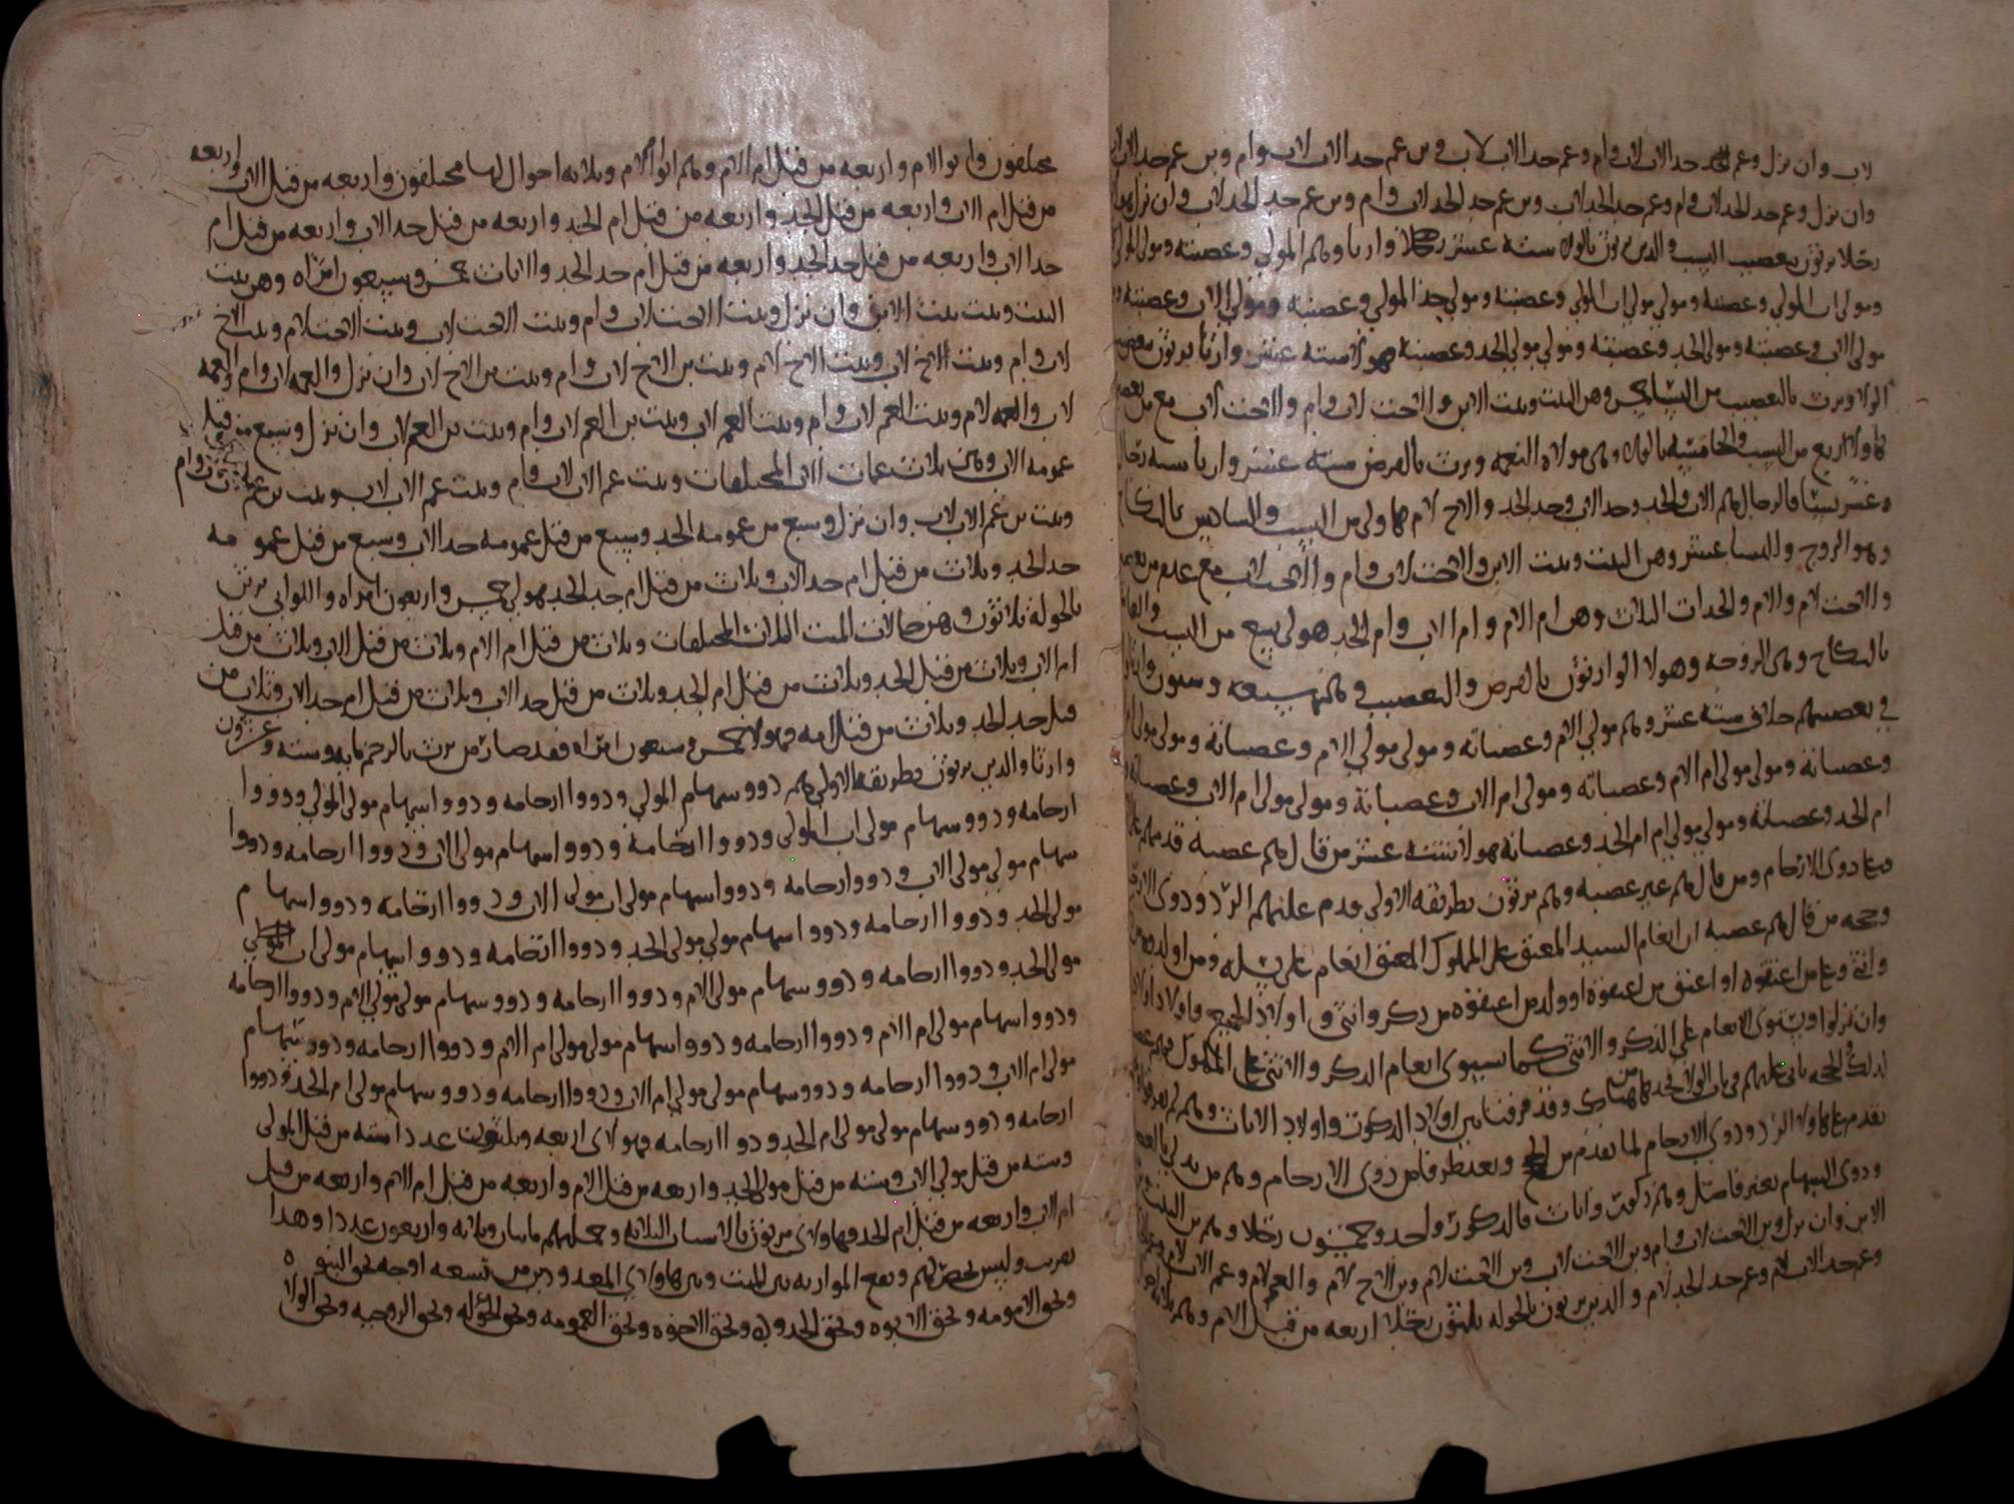 لاب وان نزل وعم جد الاب لاب وام وعم جد الاب لاب وبن عم جد الاب لاب وام وبن عم جد الاب
وان نزل وعم جد الجد لاب وام وعم جد الجد لاب وبن عم جد الجد لاب وام وبن عم جد الجد لاب وان نزل
رجلا يرثون بتعصيب النسب والذين يرثون بالولا ستة عشر وارثا وهم المولى وعصبته ومولى المولى
ومولى اب المولى وعصبته ومولى مولى اب المولى وعصبته ومولى جد المولى وعصبته ومولى الاب وعصبته
مولى الاب وعصبته ومولى الجد وعصبته ومولى مولى الجد وعصبته فهولا ستة عشر وارثا يرثون
الولا ويرث بالتعصيب من النسا خمس وهن البنت وبنت الابن والاخت لاب وام والاخت لاب مع من
هاولا اربع من النسب والخامسة بالولا وهي مولاة النعمة ويرث بالفرض ستة عشر وارثا ستة رجال
وعشر نسا فالرجال هم الاب والجد وجد الاب وجد الجد والاخ لام هاولى من النسب والسادس بالنكاح
وهو الزوج والنسا عشر وهن البنت وبنت الابن والاخت لاب وام والاخت لاب مع عدم من
والاخت لام والام والجدات الثلاث وهن ام الام وام الاب وام الجد هولى تسع من النسب
بالنكاح وهي الزوجة وهولا الوارثون بالفرض والتعصيب وهم تسعة وستون
في تعصيبهم خلاف ستة عشر وهم مولى الام وعصباته ومولى مولى الام وعصباته ومولى
وعصباته ومولى مولى ام الام وعصباته ومولى ام الاب وعصباته ومولى مولى ام الاب وعصباته
ام الجد وعصباته ومولى مولى ام الجد وعصباته فهولا ستة عشر من قال هم عصبة قدمهم على
ذوي الارحام ومن قال هم غير عصبة وهم يرثون بطريقه الاولى قدم عليهم الرد وذوى
وحجة من قال هم عصبة ان انعام السيد المعتق على المملوك المعتق انعام على نسله ومن اولده
وانثى وعلى من اعتقوه او اعتق من اعتقوه او ولد من اعتقوه من ذكر وانثى واولاد الجميع واولاد
وان نزلوا ويستوى الانعام على الذكر والانثى كما يستوى انعام الذكر والانثى على المملوك
لذلك والحجة تاتي عليهم في باب الولا وقد فرقنا بين اولاد الذكور واولاد الاناث
تقدم هاولا الرد وذوى الارحام لما تقدم من الحجج وبعد نظر فاض ذوى الارحام وهم من يدلى
وذوى السهام بغير فاصل وهم ذكور واناث فالذكور واحد وخمسون رجلا وهم بن البنت
الابن وان نزل وبن الاخت لاب وام وبن الاخت لاب وبن الاخت لام وبن الاخ لام والعم لام وعم الاب لام
وعم جد الاب لام وعم جد الجد لام والذين يرثون بالخولة ثلثون رجلا اربعة من قبل الام وهم ثلاثة
مختلفون وابو الام واربعة من قبل ام الام وهم ابو ام الام وثلاثة اخوال لها مختلفون واربعة من قبل الاب واربعة
من قبل ام الاب واربعة من قبل الجد واربعة من قبل ام الجد واربعة من قبل جد الاب واربعة من قبل ام
جد الاب واربعة من قبل جد الجد واربعة من قبل ام جد الجد والاناث خمس وسبعون امراة وهن بنت
البنت وبنت بنت الابن وان نزل وبنت الاخت لاب وام وبنت الاخت لاب وبنت الاخت لام وبنت الاخ
لاب وام وبنت الاخ لاب وبنت الاخ لام وبنت بن الاخ لاب وام وبنت بن الاخ لاب وان نزل والعمة لاب وام والعمة
لاب والعمة لام وبنت العم لاب وام وبنت العم لاب وبنت بن العم لاب وام وبنت بن العم لاب وان نزل وسبع من قبل
عمومة الاب وهن ثلاث عمات الاب المختلفات وبنت عم الاب لاب وام وبنت عم الاب لاب وبنت بن عم
وبنت بن عم الاب لاب وان نزل وسبع من عمومة الجد وسبع من قبل عمومة جد الاب وسبع من قبل عمو مة
جد الجد وثلاث من قبل ام جد الاب وثلاث من قبل ام جد الجد فهولى خمس واربعون امراة واللواتي يرثن
بالخولة ثلاثون وهن خالات الميت الثلاث المختلفات وثلاث من قبل ام الام وثلاث من قبل الاب وثلاث من قبل
ام الاب وثلاث من قبل الجد وثلاث من قبل ام الجد وثلاث من قبل جد الاب وثلاث من قبل ام جد الاب وثلاث من
قبل جد الجد وثلاث من قبل امه فهولا خمس وسبعون امراة فقد صار من يرث بالرحم ماية وستة وعشرون
وارثا والذين يرثون بطريقة الاولى هم ذوو سهام المولى وذووا ارحامه وذووا سهام مولى المولى وذووا
ارحامه وذوو سهام مولى اب المولى وذووا ارحامه وذووا سهام مولى الاب وذووا ارحامه وذووا
سهام مولى مولى الاب وذووا ارحامه وذووا سهام مولى اب مولى الاب وذووا ارحامه وذووا سهام
مولى الجد وذووا ارحامه وذووا سهام مولى مولى الجد وذووا ارحامه وذووا سهام مولى اب
مولى الجد وذووا ارحامه وذوو سهام مولى الام وذووا ارحامه وذوو سهام مولى مولى الام وذووا ارحامه
وذووا سهام مولى ام الام وذووا ارحامه وذووا سهام مولى مولى ام الام وذووا ارحامه وذوو سهام
مولى ام الاب وذووا ارحامه وذوو سهام مولى مولى ام الاب وذووا ارحامه وذوو سهام مولى ام الجد وذووا
ارحامه وذوو سهام مولى مولى ام الجد وذووا ارحامه فهولاى اربعة وثلثون عددا ستة من قبل المولى
وستة من قبل مولى الاب وستة من قبل مولى الجد واربعة من قبل الام واربعة من قبل ام الام واربعة من قبل
ام الاب واربعة من قبل ام الجد فهاولاى يرثون بالاسباب الثلاثة وجملتهم مايتان وثلاثة واربعون عددا وهذا
تقريب وليس بحصر لهم وتقع الموارثة بين الميت وبين هاولاى المعدودين من تسعة اوجه بحق البنوة
وبحق الامومة وبحق الابوة وبحق الجدودة وبحق الاخوة وبحق العمومة وبحق الخولة وبحق الزوجية وبحق الولا